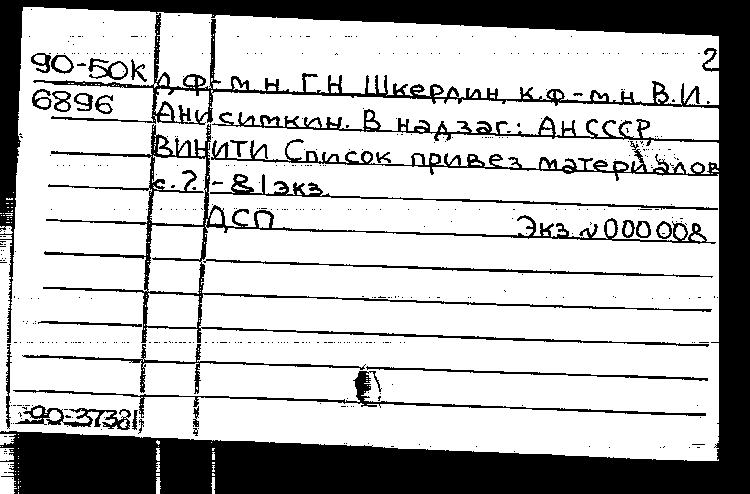 2
90-50К д.ф-м.н. Г.Н. Шкердин, к.ф-м.н. В.И.
6896 Анисимкин. В надзаг.: АН СССР,
ВИНИТИ Список привез материалов
с. 2-81экз.
ДСП Экз №000008
90-37381